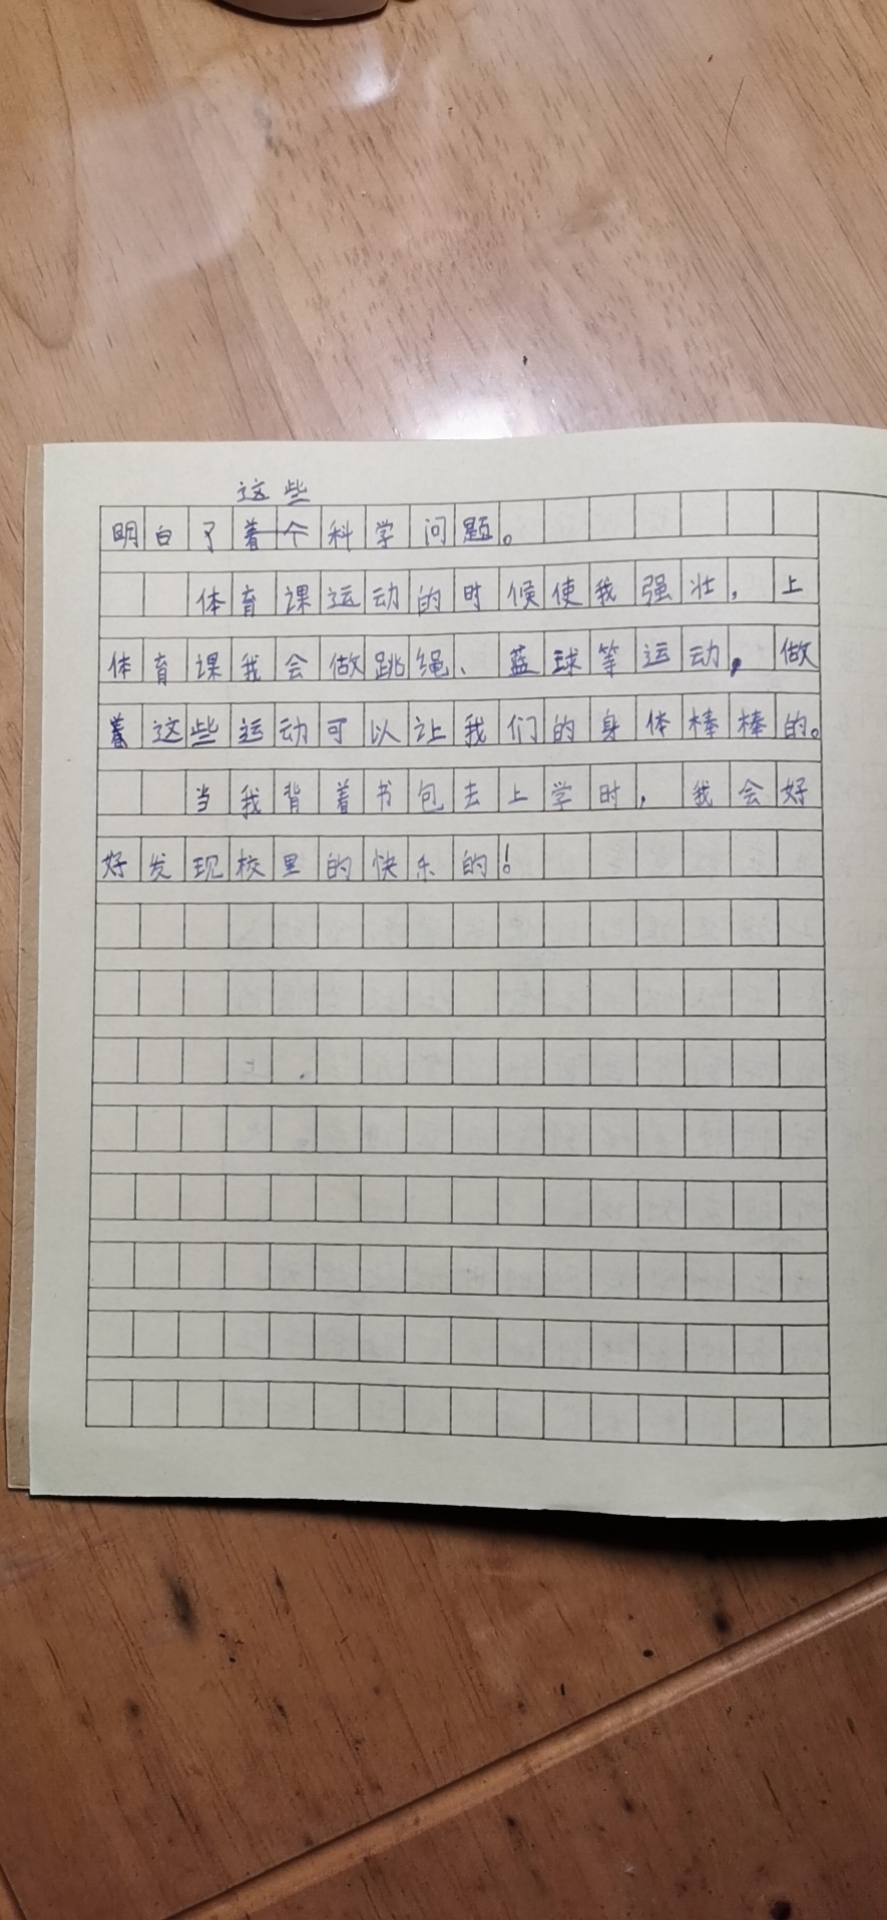 这些
明白了着个科学问题。
体育课运动的时候使我强壮，上
体育课我会做跳绳、篮球等运动，做
着这些运动可以让我们的身体棒棒的。
当我背着书包去上学时，我会好
好发现校里的快乐的！